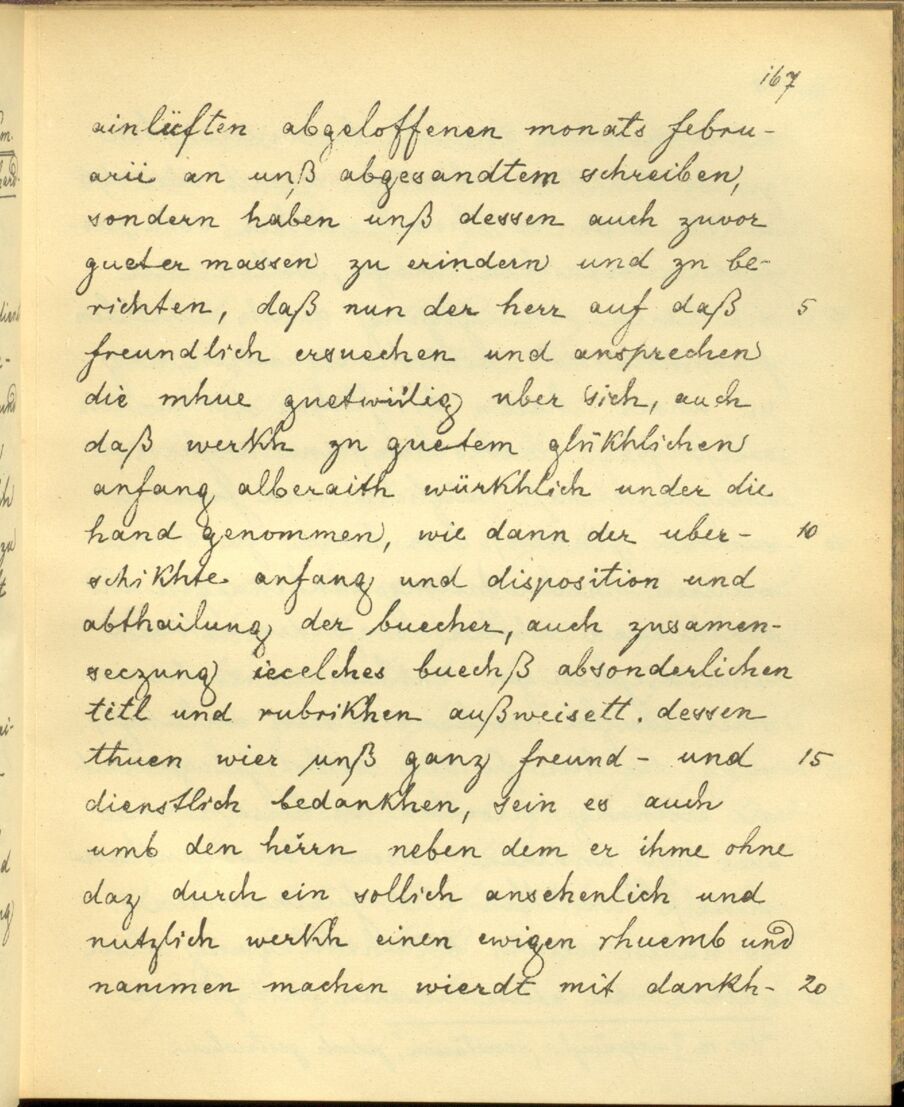 167
ainlüften abgeloffenen monats febru-
arii an unß abgesandtem schreiben,
sondern haben unß dessen auch zuvor
gueter massen zu erindern und zu be-
richten, daß nun der herr auf daß 5
freundlich ersuechen und ansprechen
die mhue guetwillig uber sich, auch
daß werkh zu guetem glükhlichen
anfang alberaith würkhlich under die
hand genommen, wie dann der uber- 10
schikhte anfang und disposition und
abthailung der buecher, auch zusamen-
seczung iecelches buechß absonderlichen
titl und rubrikhen außweisett. dessen
thuen wier unß ganz freund- und 15
dienstlich bedankhen, sein es auch
umb den herrn neben dem er ihme ohne
daz durch ein sollich ansehenlich und
nutzlich werkh einen ewigen rhuemb und
nammen machen wierdt mit dankh- 20